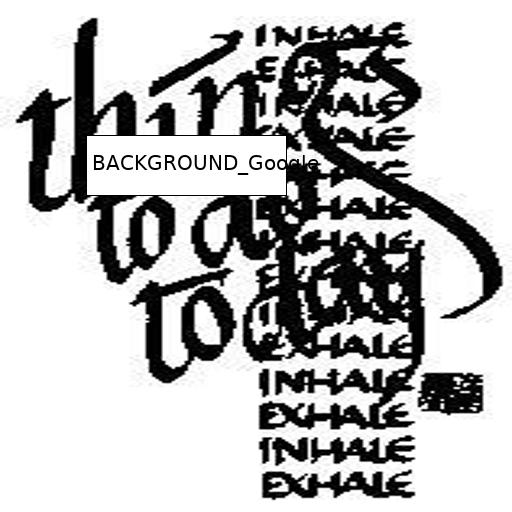 things
to do
today
BACKGROUND_Google
INHALE
EXHALE
INHALE
EXHALE
INHALE
EXHALE
INHALE
EXHALE
INHALE
EXHALE
INHALE
EXHALE
INHALE
EXHALE